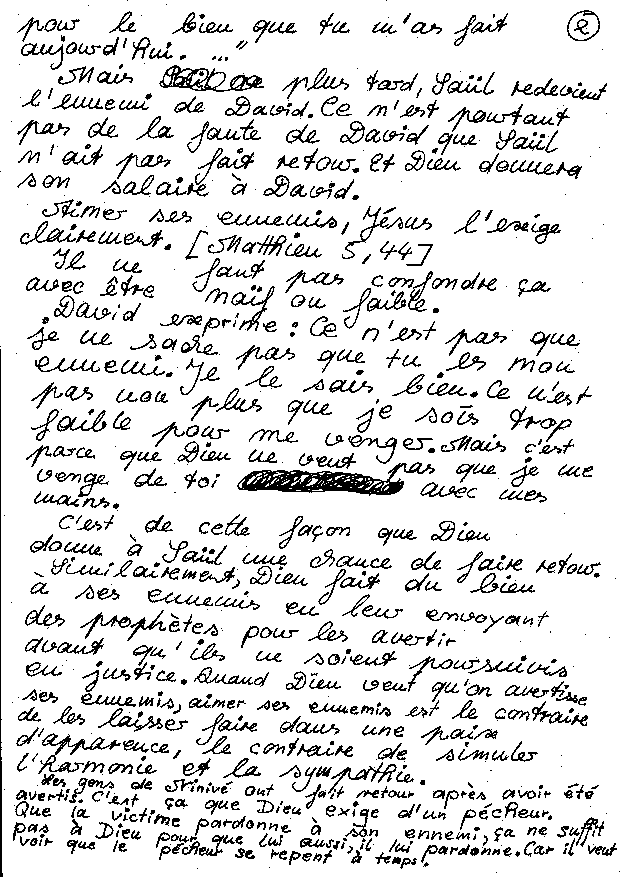 pour le bien que tu m'as fait
②
aujourd'hui. ..."
Mais plus tard, Saül redevient
l'ennemi de David. Ce n'est pourtant
pas de la faute de David que Saül
n'ait pas fait retour. Et Dieu donnera
son salaire à David.
Aimer ses ennemis, Jésus l'exige
clairement. [Matthieu 5,44]
Il ne faut pas confondre ça
avec être naïf ou faible.
David exprime: Ce n'est pas que
je ne sache pas que tu es mon
ennemi. Je le sais bien. Ce n'est
pas non plus que je sois trop
faible pour me venger. Mais c'est
parce que Dieu ne veut pas que je me
venge de toi avec mes
mains.
C'est de cette façon que Dieu
donne à Saül une chance de faire retour.
Similairement, Dieu fait du bien
à ses ennemis en leur envoyant
des prophètes pour les avertir
avant qu'ils ne soient poursuivis
en justice. Quand Dieu veut qu'on avertisse
ses ennemis, aimer ses ennemis est le contraire
de les laisser faire dans une paix
d'apparence, le contraire de simuler
l'harmonie et la sympathie.
Les gens de Ninivé ont fait retour après avoir été
avertis. C'est ça que Dieu exige d'un pécheur.
Que la victime pardonne à son ennemi, ça ne suffit
pas à Dieu pour que lui aussi, il lui pardonne. Car il veut
voir que le pécheur se repent à temps!